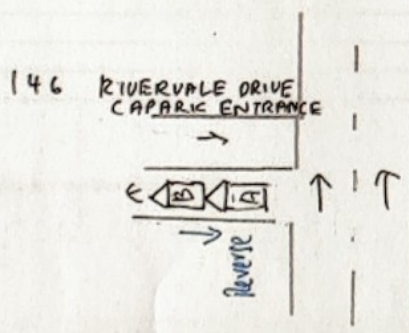 146 RIVERVALE DRIVE
CAPARK ENTRANCE
B A
Reverse